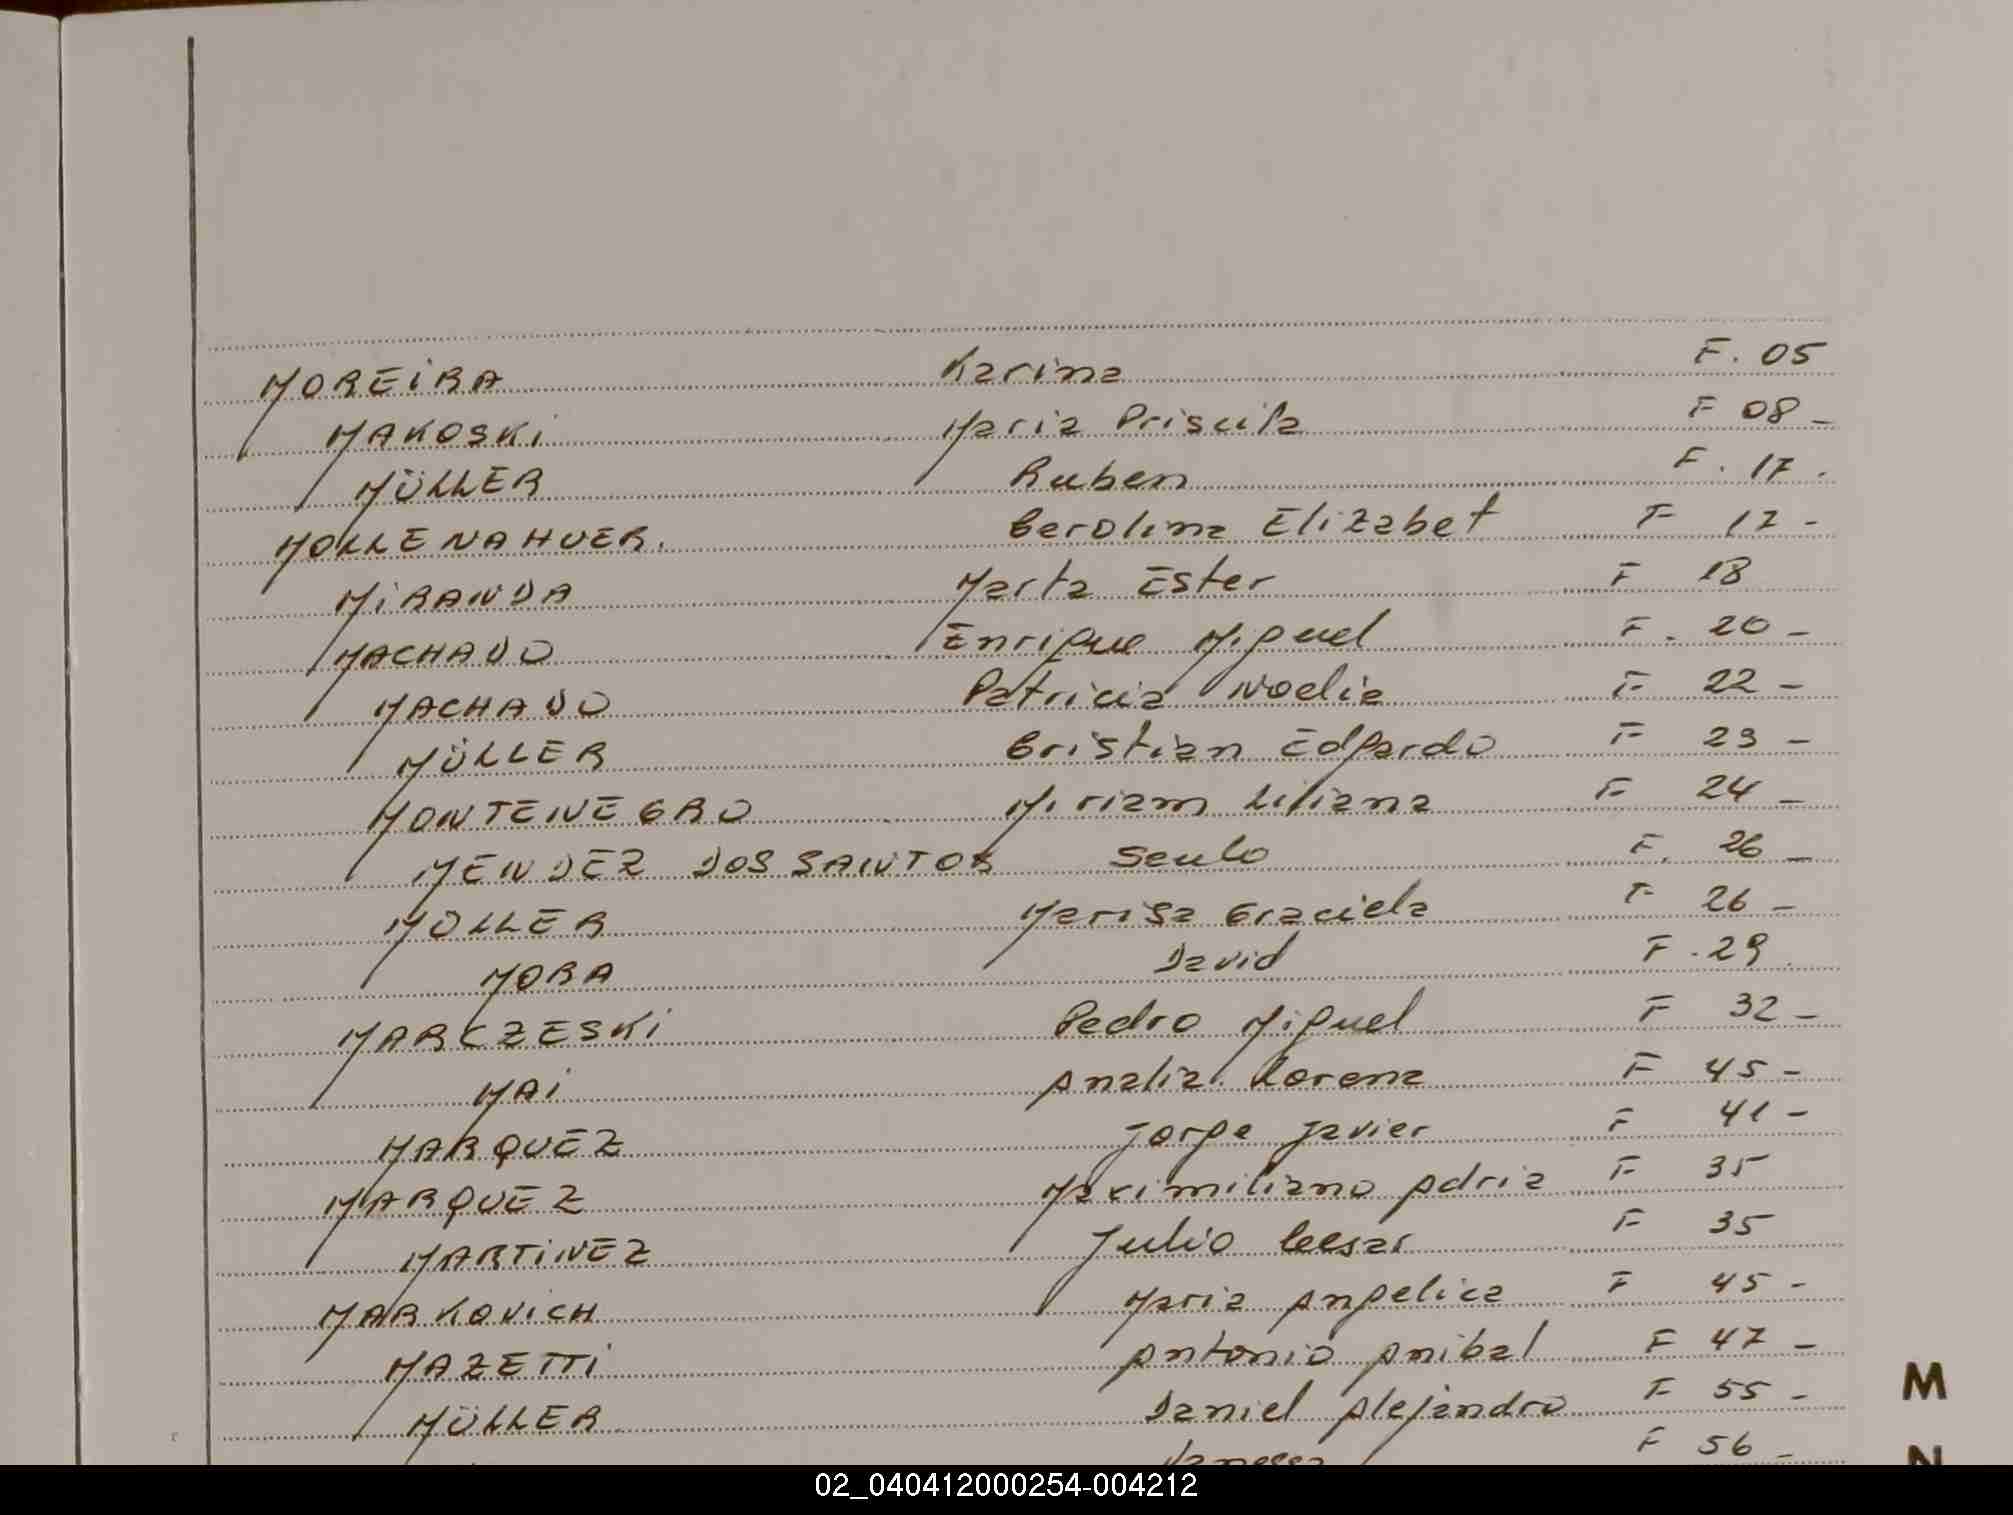 MOREIRA Karina F. 05
MAKOSKI Maria Priscila F 08 -
MÜLLER Ruben F. 17.
MOLLENAHUER. Carolina Elizabet F 17 -
MIRANDA Marta Ester F 18
MACHADO Enrique Miguel F. 20 -
MACHADO Patricia Noelia F 22 -
MÜLLER Cristian Edgardo F 23 -
MONTENEGRO Miriam Liliana F 24 -
MENDEZ DOS SANTOS Saulo F. 26 -
MOLLER Marisa Graciela F 26 -
MORA David F. 29
MARCZESKI Pedro Miguel F 32 -
MAI Analia Lorena F 45 -
MARQUEZ Jorge Javier F 41 -
MARQUEZ Maximiliano Adria F 35
MARTINEZ Julio Cesar F 35
MARKOVICH Maria Angelica F 45 -
MAZETTI Antonio Anibal F 47 -
MÜLLER Daniel Alejandro F 55 -
F 56 -
M
N
02_040412000254-004212